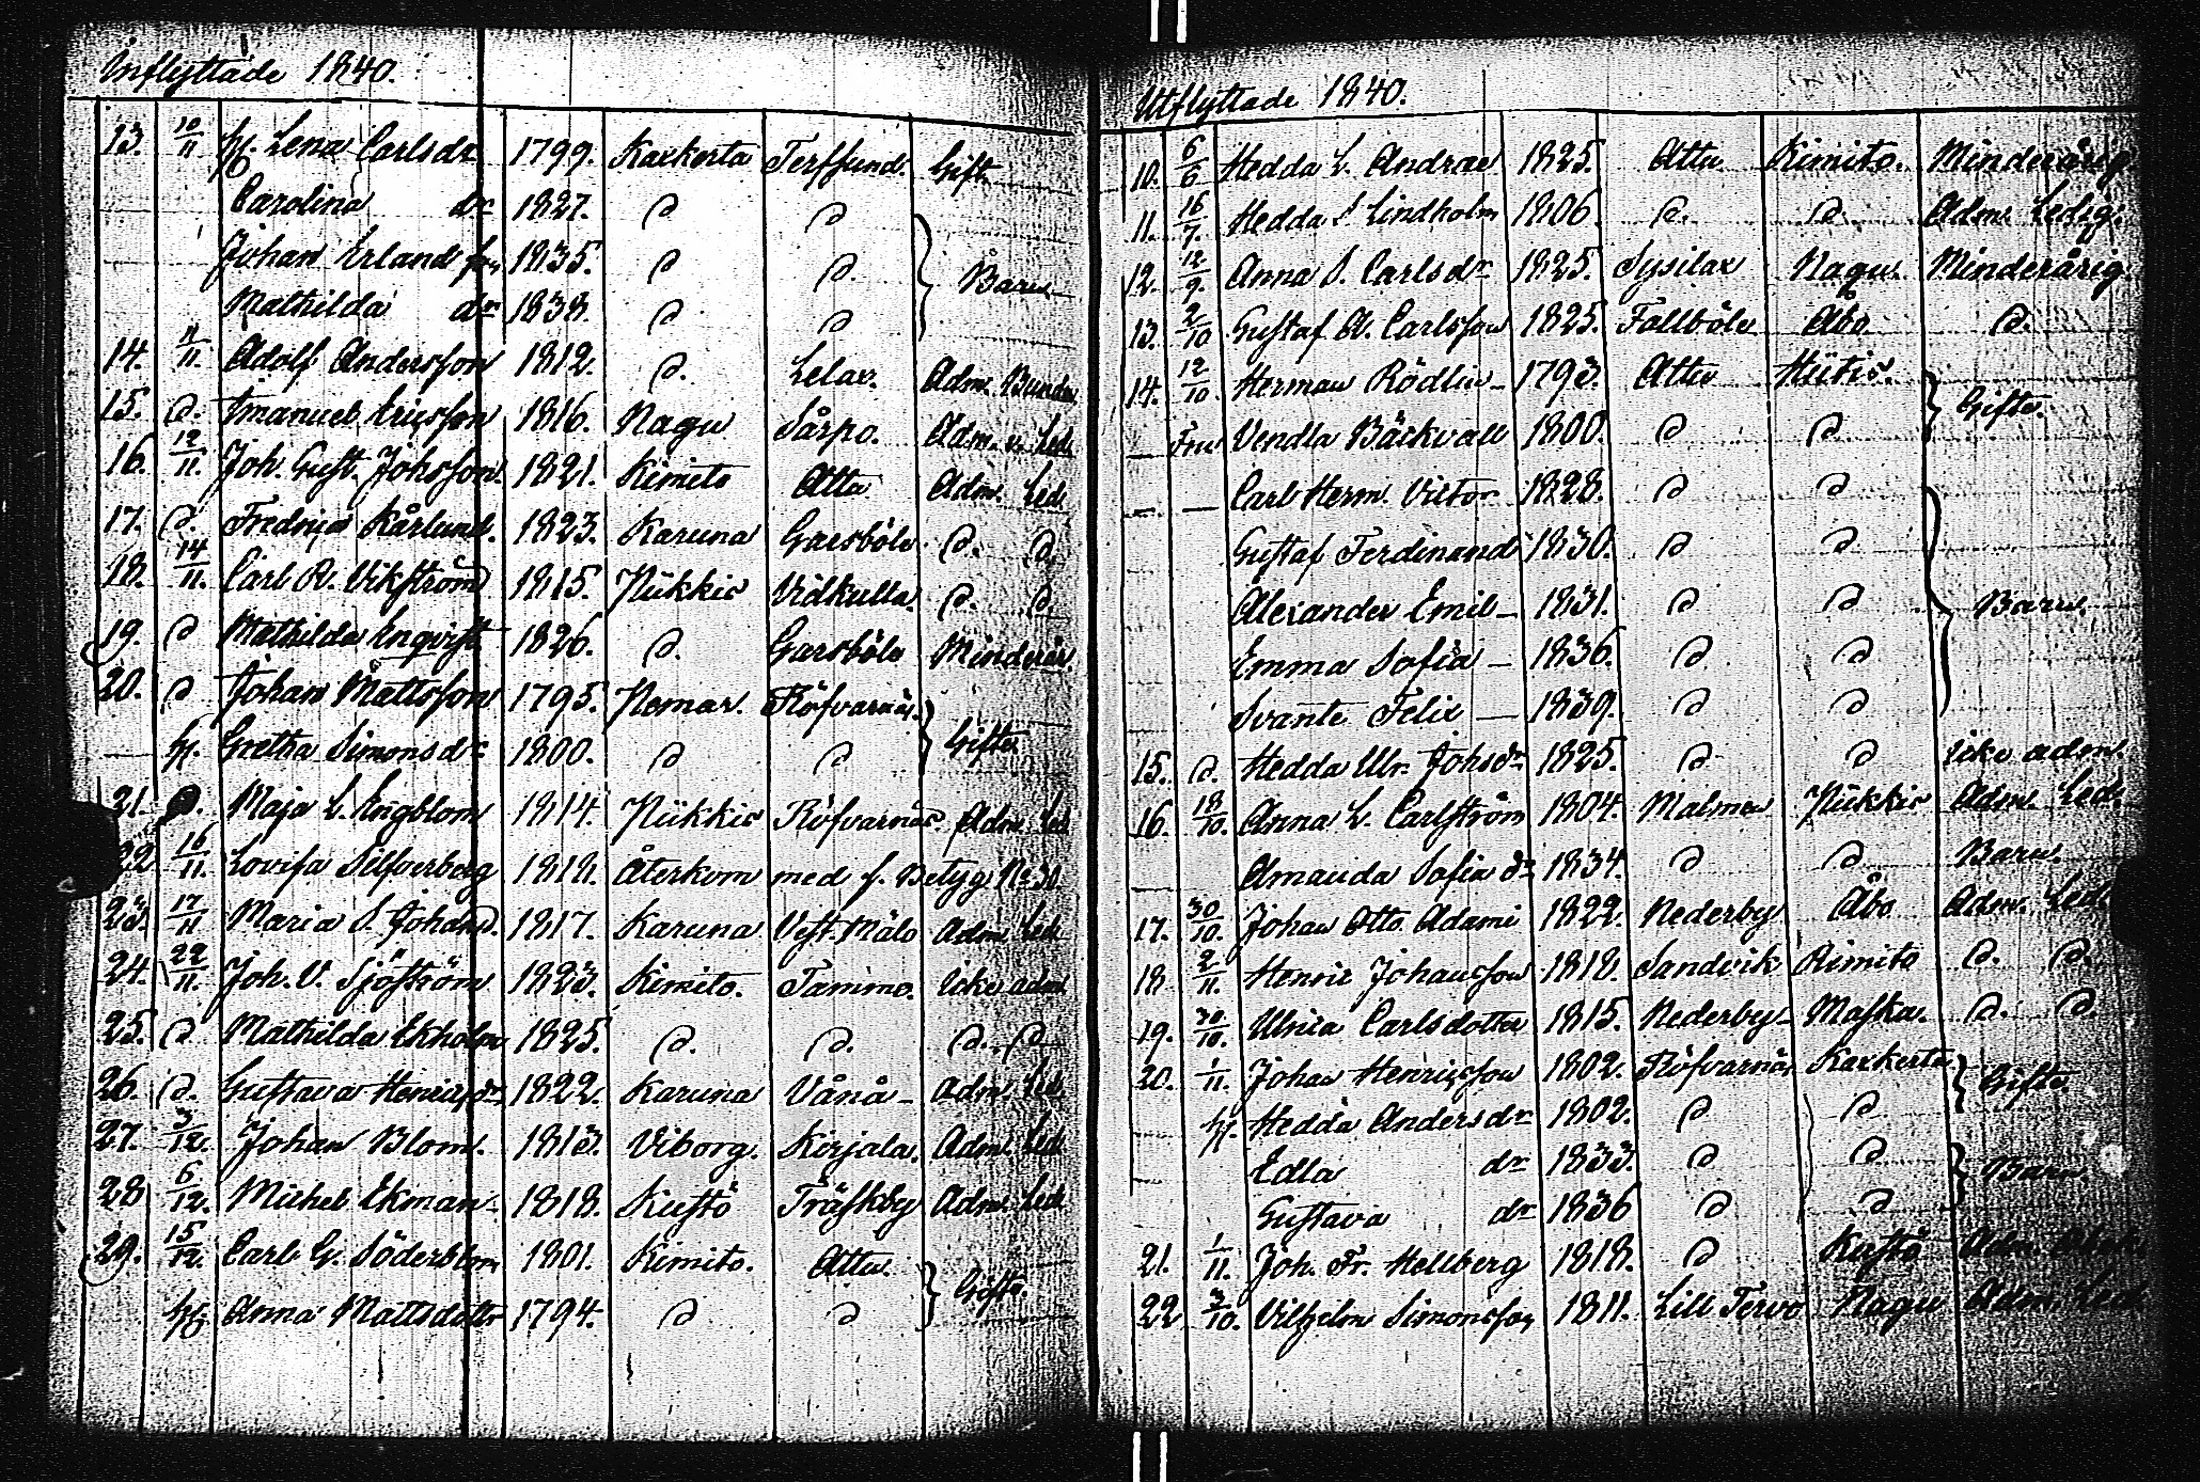 Inflyttade 1840.
13. 10/11 H. Lena Carlsdr 1799. Kaxkerta Terfsund. Gift
Carolina dr 1827. D D
Johan Erland son 1835. D D. Barn
Mathilda dr 1838. D D
14. 11/11 Adolf Andersson 1812. D. Lelax. Adm. Bunden
15. D. Emanuel Ericsson 1816. Nagu Sårpo. Adm. Led.
16. 12/11. Joh. Gust. Johsson. 1821. Kimito Attu Adm. Led.
17. D. Fredrica Kårlund. 1823. Karuna Garsböle D. D.
18. 14/11. Carl R. Vikström 1815. Pükkis Vidkulla. D. D.
19. D Mathilda Enqvist 1826. D. Garsböle Minderår
20. D Johan Mattsson 1795. Nemar. Röfvarnäs. Gifta
H. Gretha Simonsdr 1800. D D
21. D. Maja L. Engblom 1814. Pükkis Röfvarnäs. Adm. Led
22 16/11. Lovisa Silfverberg 1818. Återkom med f. Betyg No 30.
23. 17/11 Maria S. Johsd. 1817. Karuna Vest. Mälo Adm. Led
24. 22/11. Joh. V. Sjöström 1823. Kimito. Tammo. Icke adm
25. D Mathilda Ekholm 1825. D. D. D. D
26. D. Gustava Henricsdr 1822. Karuna Vånå Adm. Led.
27. 3/12. Johan Blom. 1813. Viborg. Kirjala. Adm. Led
28 6/12. Michel Ekman 1818. Kustö Träskby Adm. Led
29. 15/12. Carl G. Söderblom 1801. Kimito. Attu. Gifta.
H. Anna Mattsdotter 1794. D D
Utflyttade 1840.
10. 6/6 Hedda L. Andrae 1825. Attu Kimito. Minderårig
11. 16/7. Hedda S Lindholm 1806. D. D. Adm. Ledig.
12. 12/9. Anna S. Carlsdr 1825. Sysilax Nagu. Minderårig.
13. 2/10 Gustaf A. Carlsson 1825. Fallböle Åbo D.
14. 12/10. Herman Rödlin 1793. Attu Hitis. Gifta.
Fru Vendla Bäckvall 1800. D D
Carl Herm. Victor 1828. D D
Gustaf Ferdinand 1830. D D
Alexander Emil 1831. D D Barn
Emma Sofia 1836. D D
Svante Felix 1839. D D
15. D. Hedda Ulr. Johsdr 1825. D D icke adm.
16. 18/10. Anna L. Carlström 1804. Malmen Pükkis Adm. Led.
Amanda Sofia dr 1834. D D Barn.
17. 30/10. Johan Otto Adami 1822. Nederby Åbo Adm. Led.
18 2/11. Henric Johansson 1818. Sandvik Rimito D. D.
19. 30/10. Ulrica Carlsdotter 1815. Nederby Maska. D. D.
20. 1/11. Johan Henricsson 1802. Röfvarnäs Kaxkerta Gifta
H. Hedda Andersdr 1802. D D
Edla dr 1833. D D Barn.
Gustava dr 1836 D D
21. 1/11. Joh. Fr. Hellberg 1818. D Kustö Adm.
22 3/10. Vilhelm Simonsson 1811. Lill Tervo Nagu Adm. Led